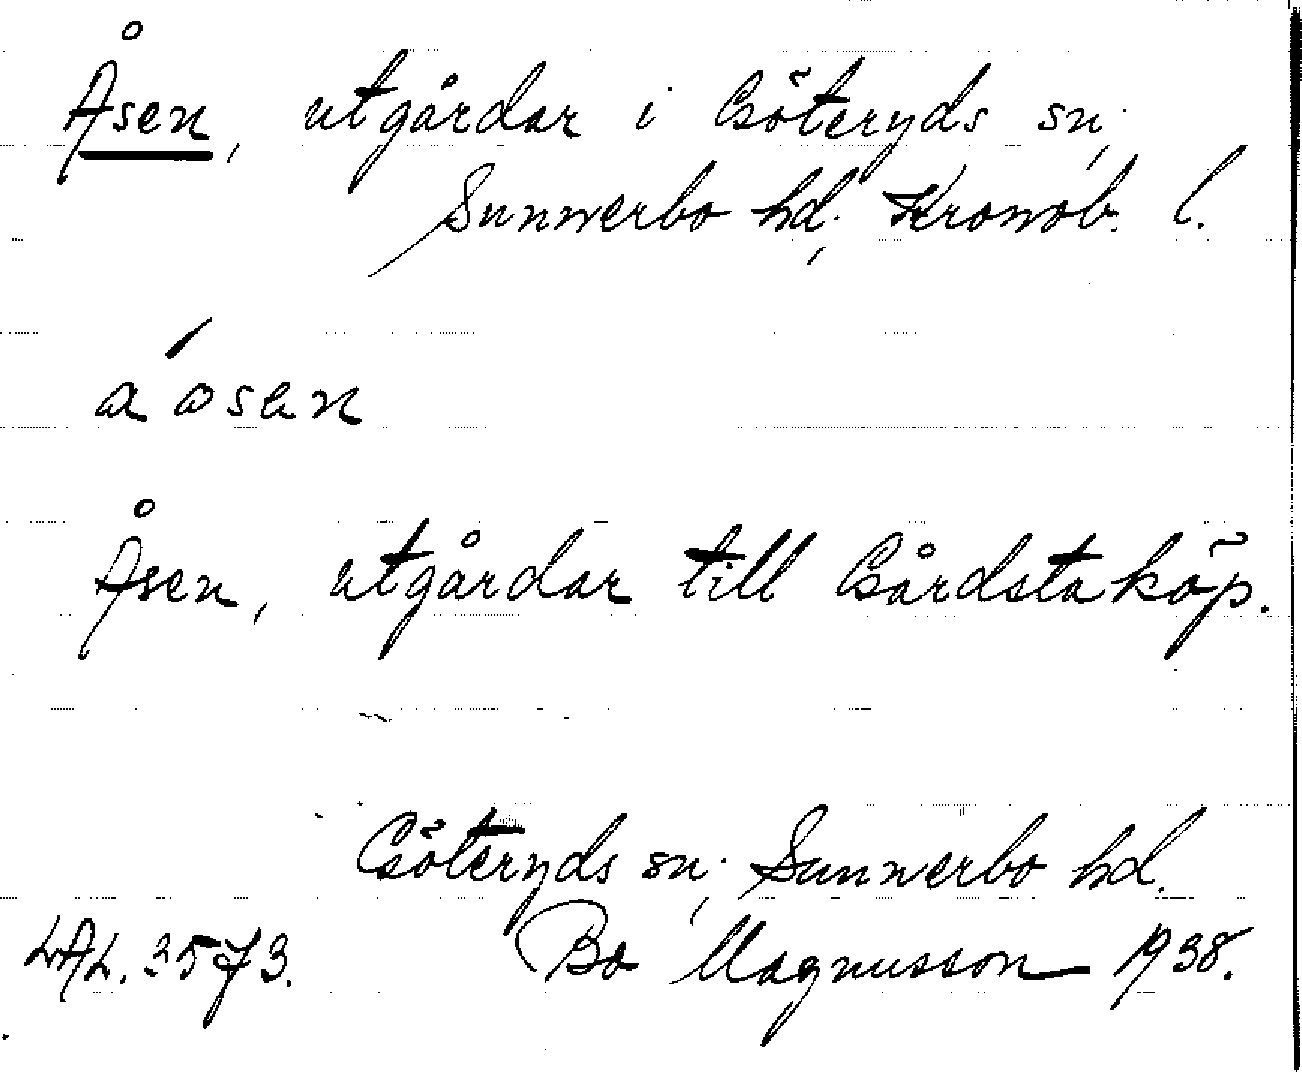 Åsen, utgårdar i Göteryds sn.,
Sunnerbo hd., Kronob. l.
a ósen
Åsen, utgårdar till Gårdstaköp.
Göteryds sn., Sunnerbo hd.
LAL. 3573. Bo Magnusson 1938.